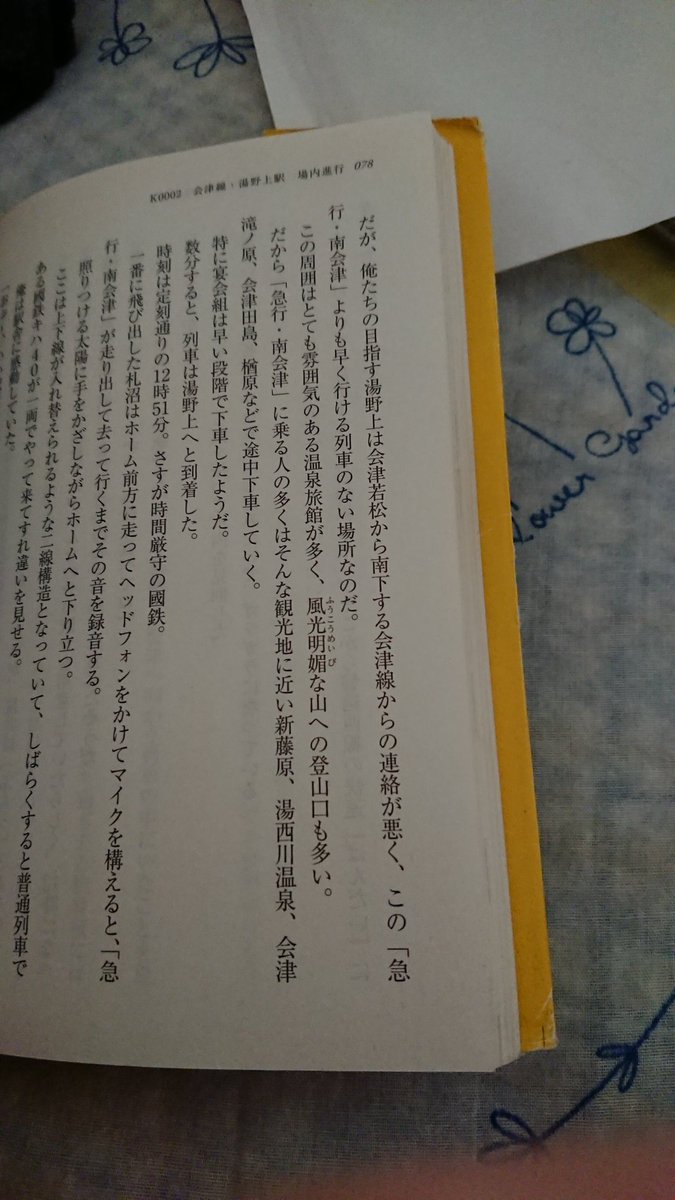 K0002 会津線・湯野上駅 場内進行 078
だが、俺たちの目指す湯野上は会津若松から南下する会津線からの連絡が悪く、この「急
行・南会津」よりも早く行ける列車のない場所なのだ。
この周囲はとても雰囲気のある温泉旅館が多く、風光明媚な山への登山口も多い。
ふうこうめいび
だから「急行・南会津」に乗る人の多くはそんな観光地に近い新藤原、湯西川温泉、会津
滝ノ原、会津田島、楢原などで途中下車していく。
特に宴会組は早い段階で下車したようだ。
数分すると、列車は湯野上へと到着した。
時刻は定刻通りの12時51分。さすが時間厳守の國鉄。
一番に飛び出した札沼はホーム前方に走ってヘッドフォンをかけてマイクを構えると、「急
行・南会津」が走り出して去って行くまでその音を録音する。
照りつける太陽に手をかざしながらホームへと下り立つ。
ここは上下線が入れ替えられるような二線構造となっていて、しばらくすると普通列車で
ある國鉄キハ40が一両でやって来てすれ違いを見せる。
Flower Garde